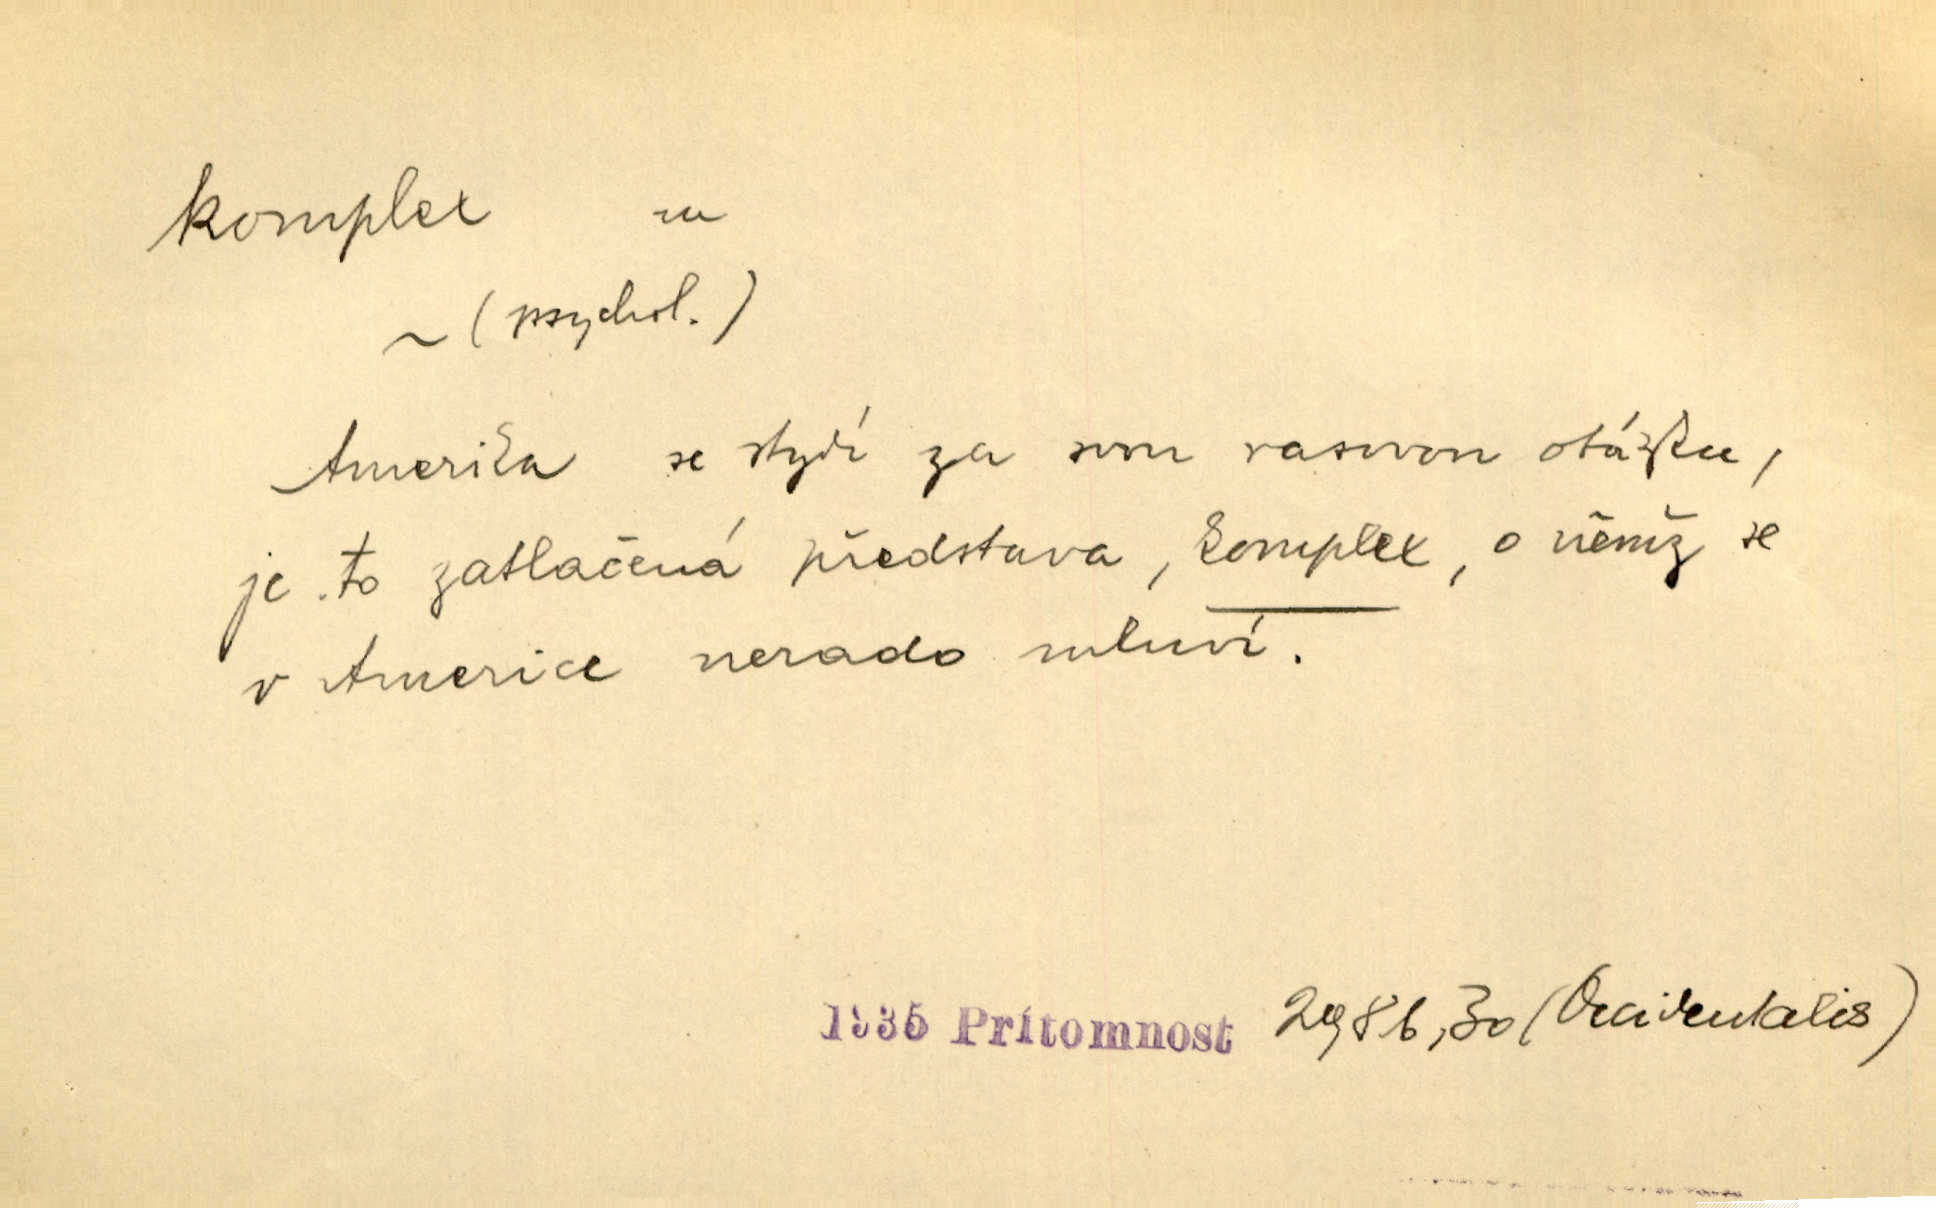 komplex m
~ (psychol.)
Amerika se stydí za svou rasovou otázku,
je to zatlačená představa, komplex, o němž se
v Americe nerado mluví.
1935 Prítomnost 298b,30 (Occidentalis)